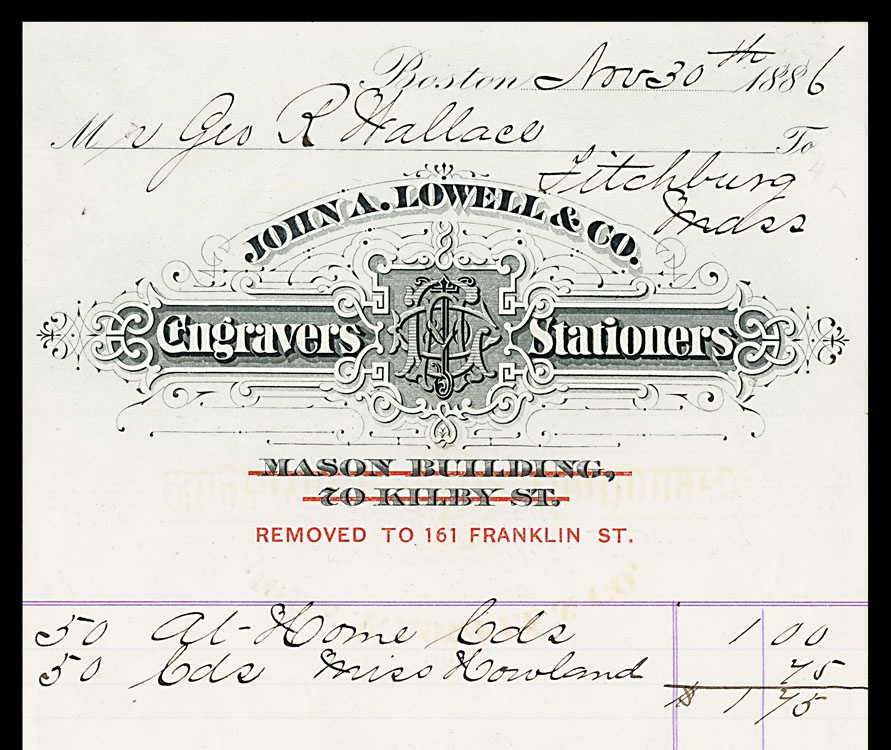 Boston Nov 30th 1886
Mr Geo R Wallace To
Fitchburg
Mass
JOHN A. LOWELL & CO.
Engravers Stationers
MASON BUILDING,
70 KILBY ST.
REMOVED TO 161 FRANKLIN ST.
50 At-Home Cds 1 00
50 Cds Miss Howland 75
$ 1 75